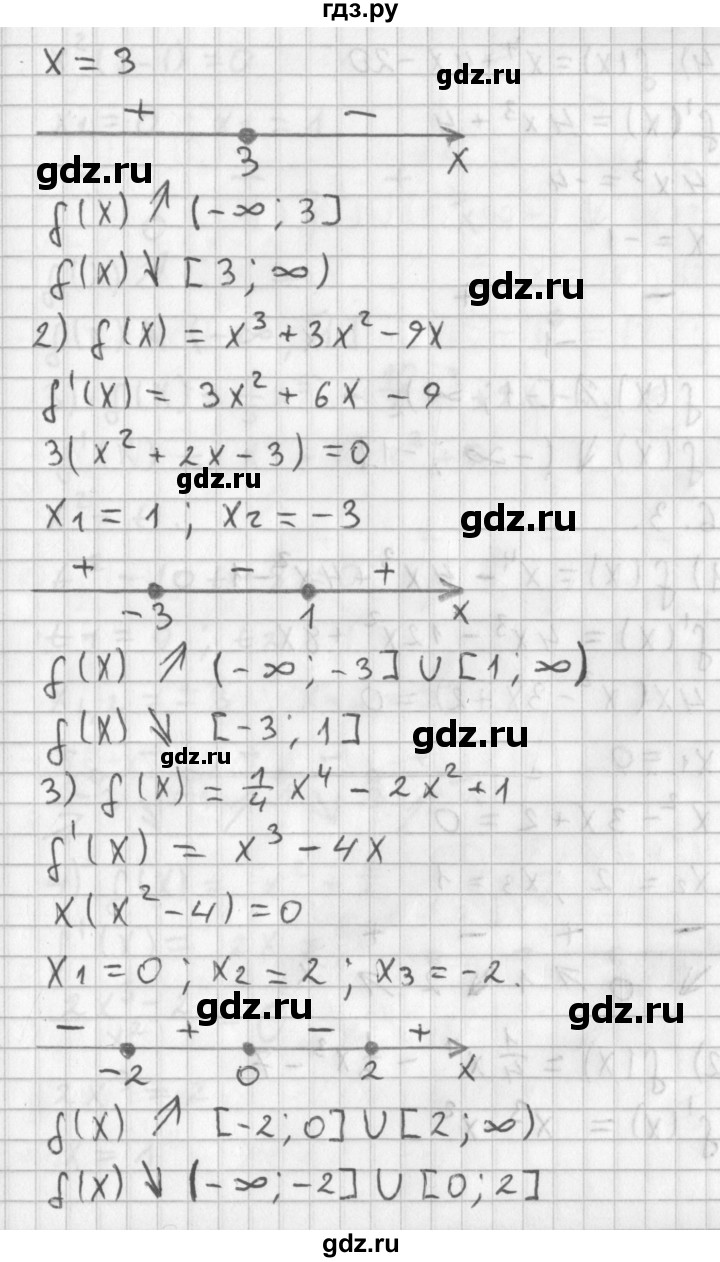 гдз.ру
x = 3
gdz.ru
+ −
3 x
gdz.ru
f(x) ↗ (−∞; 3]
f(x) ↘ [3; ∞)
gdz.ru
2) f(x) = x³ + 3x² − 9x
f'(x) = 3x² + 6x − 9
3(x² + 2x − 3) = 0
gdz.ru
x₁ = 1 ; x₂ = −3
gdz.ru
+ − +
−3 1 x
f(x) ↗ (−∞; −3] ∪ [1; ∞)
f(x) ↘ [−3; 1]
gdz.ru
gdz.ru
3) f(x) = 1/4 x⁴ − 2x² + 1
f'(x) = x³ − 4x
x(x² − 4) = 0
x₁ = 0 ; x₂ = 2 ; x₃ = −2.
gdz.ru
gdz.ru
− + − +
−2 0 2 x
f(x) ↗ [−2; 0] ∪ [2; ∞)
f(x) ↘ (−∞; −2] ∪ [0; 2]
gdz.ru